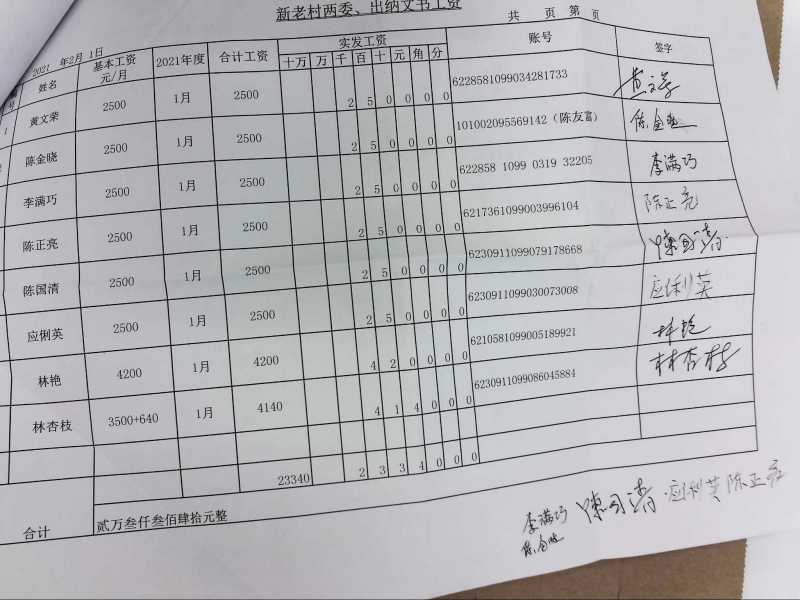 新老村两委、出纳文书工资
共 页 第 页
2021 年2月 1日
号 姓名 基本工资 元/月 2021年度 合计工资 实发工资 十万 万 千 百 十 元 角 分 账号 签字
1 黄文荣 2500 1月 2500 2 5 0 0 0 0 6228581099034281733 黄文荣
陈金晓 2500 1月 2500 2 5 0 0 0 0 101002095569142（陈友富） 陈金晓
李满巧 2500 1月 2500 2 5 0 0 0 0 622858 1099 0319 32205 李满巧
陈正亮 2500 1月 2500 2 5 0 0 0 0 6217361099003996104 陈正亮
陈国清 2500 1月 2500 2 5 0 0 0 0 6230911099079178668 陈国清
应俐英 2500 1月 2500 2 5 0 0 0 0 6230911099030073008 应俐英
林艳 4200 1月 4200 4 2 0 0 0 0 6210581099005189921 林艳
林杏枝 3500+640 1月 4140 4 1 4 0 0 0 6230911099086045884 林杏枝
23340 2 3 3 4 0 0 0
合计 贰万叁仟叁佰肆拾元整
李满巧 陈国清 应俐英 陈正亮
陈金晓